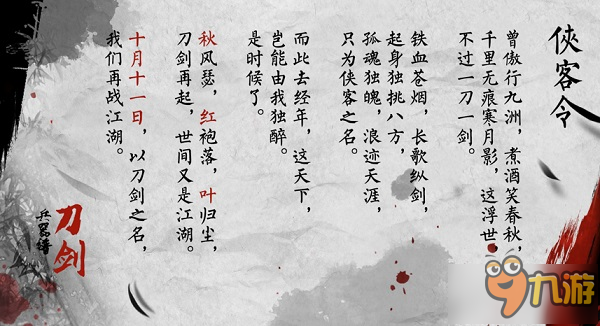 侠客令
曾傲行九洲，煮酒笑春秋，
千里无痕寒月影，这浮世，
不过一刀一剑。
铁血苍烟，长歌纵剑，
起身独挑八方，
孤魂独魄，浪迹天涯，
只为侠客之名。
而此去经年，这天下，
岂能由我独醉。
是时候了。
秋风瑟，红袍落，叶归尘，
刀剑再起，世间又是江湖。
十月十一日，以刀剑之名，
我们再战江湖。
刀剑
兵器谱
九游